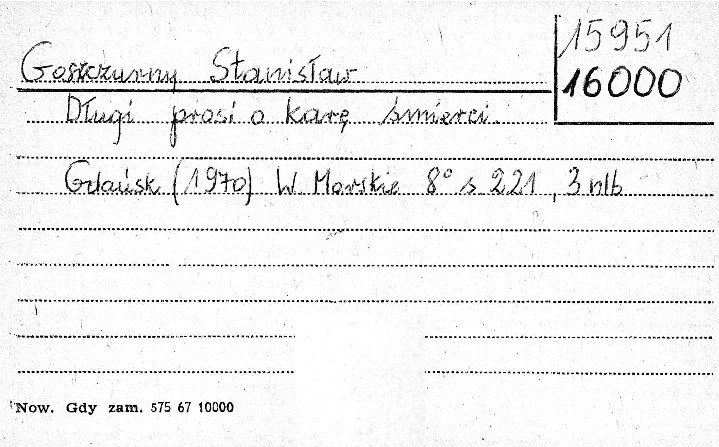 15951
Goszczurny Stanisław
16000
Długi prosi o karę śmierci.
Gdańsk (1970) W. Morskie 8° s 221, 3 nlb
Now. Gdy zam. 575 67 10000